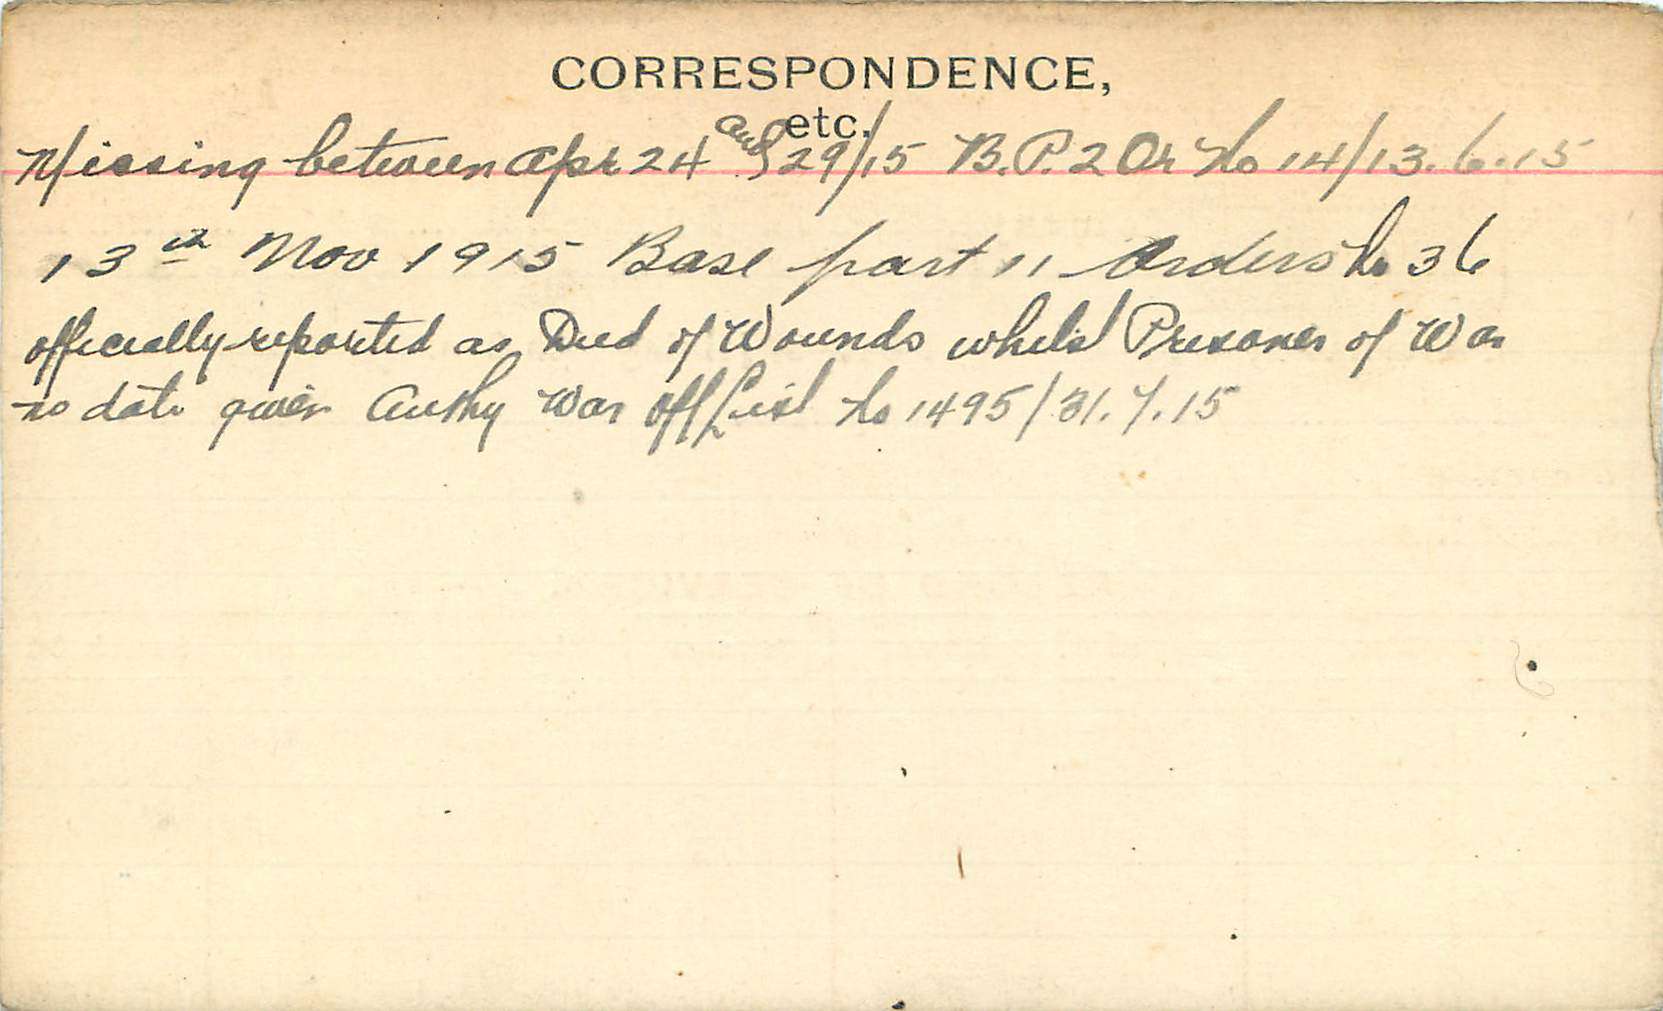 CORRESPONDENCE,
etc.
Missing between Apr 24 and 29/15 B.P. 2 Or No 14/13.6.15
13th Nov 1915 Base part 11 Orders No 36
officially reported as Died of Wounds whilst Prisoner of War
no date given Authy War Off List No 1495/31.7.15